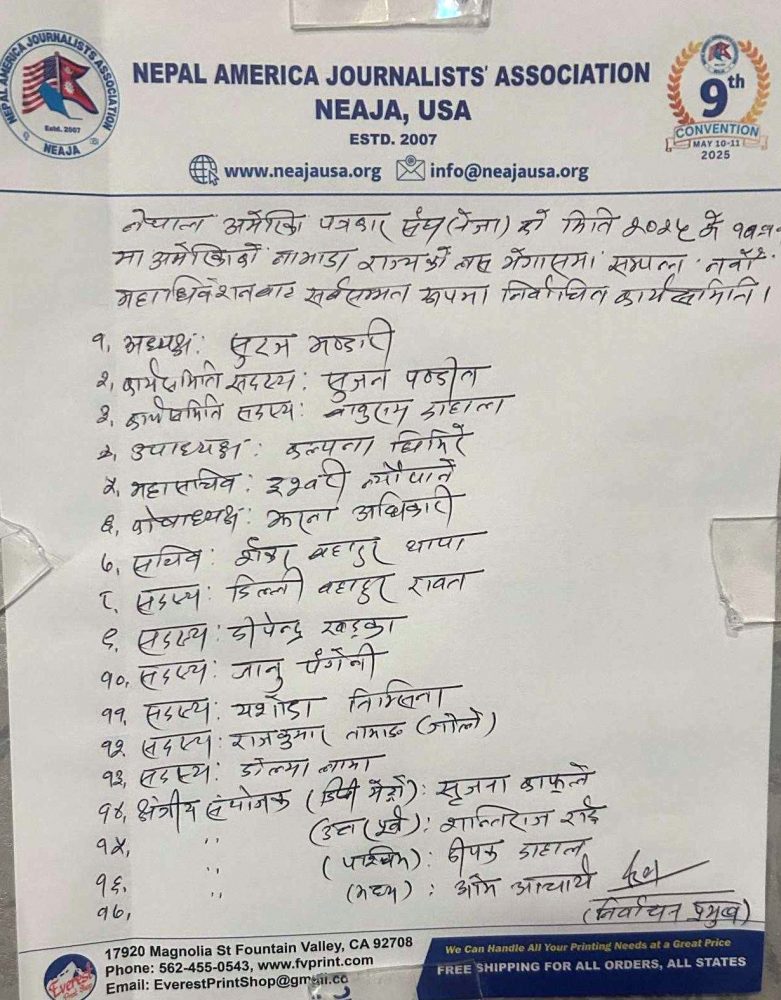 NEPAL AMERICA JOURNALISTS ASSOCIATION
Estd. 2007
NEAJA
NEPAL AMERICA JOURNALISTS' ASSOCIATION
NEAJA, USA
ESTD. 2007
www.neajausa.org info@neajausa.org
9th
CONVENTION
MAY 10-11
2025
नेपाल अमेरिका पत्रकार संघ (नेजा) को मिति २०२५ मे
मा अमेरिकाको नाभाडा राज्यको लस भेगासमा सम्पन्न नवौं
महाधिवेशनबाट सर्वसम्मत रूपमा निर्वाचित कार्यसमिति।
१, अध्यक्ष: सुरज भण्डारी
२, कार्यसमिति सदस्य: सुजन पण्डीत
३, कार्यसमिति सदस्य: बाबुराम दाहाल
४, उपाध्यक्ष: कल्पना घिमिरे
५, महासचिव: इश्वरी न्यौपाने
६, कोषाध्यक्ष: झरना अधिकारी
७, सचिव: बहादुर थापा
८, सदस्य: डिल्ली बहादुर रावत
९, सदस्य: दीपेन्द्र खड्का
१०, सदस्य: जानु पंगेनी
११, सदस्य: यशोदा तिम्सिना
१२, सदस्य: राजकुमार तामाङ (गोले)
१३, सदस्य: डोल्मा लामा
१४, क्षेत्रीय संयोजक (डिसी मेट्रो): सृजना काफ्ले
१५, ,, (उत्तर पूर्व): शान्तिराज राई
१६, ,, (पश्चिम): दीपक दाहाल
१७, (मध्य): ओम आचार्य
(निर्वाचन प्रमुख)
Everest
Print Shop
17920 Magnolia St Fountain Valley, CA 92708
Phone: 562-455-0543, www.fvprint.com
Email: EverestPrintShop@gmail.co
We Can Handle All Your Printing Needs at a Great Price
FREE SHIPPING FOR ALL ORDERS, ALL STATES